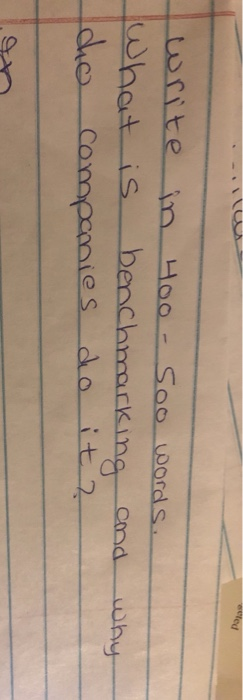 write in 400 - 500 words.
What is benchmarking and why
do companies do it?